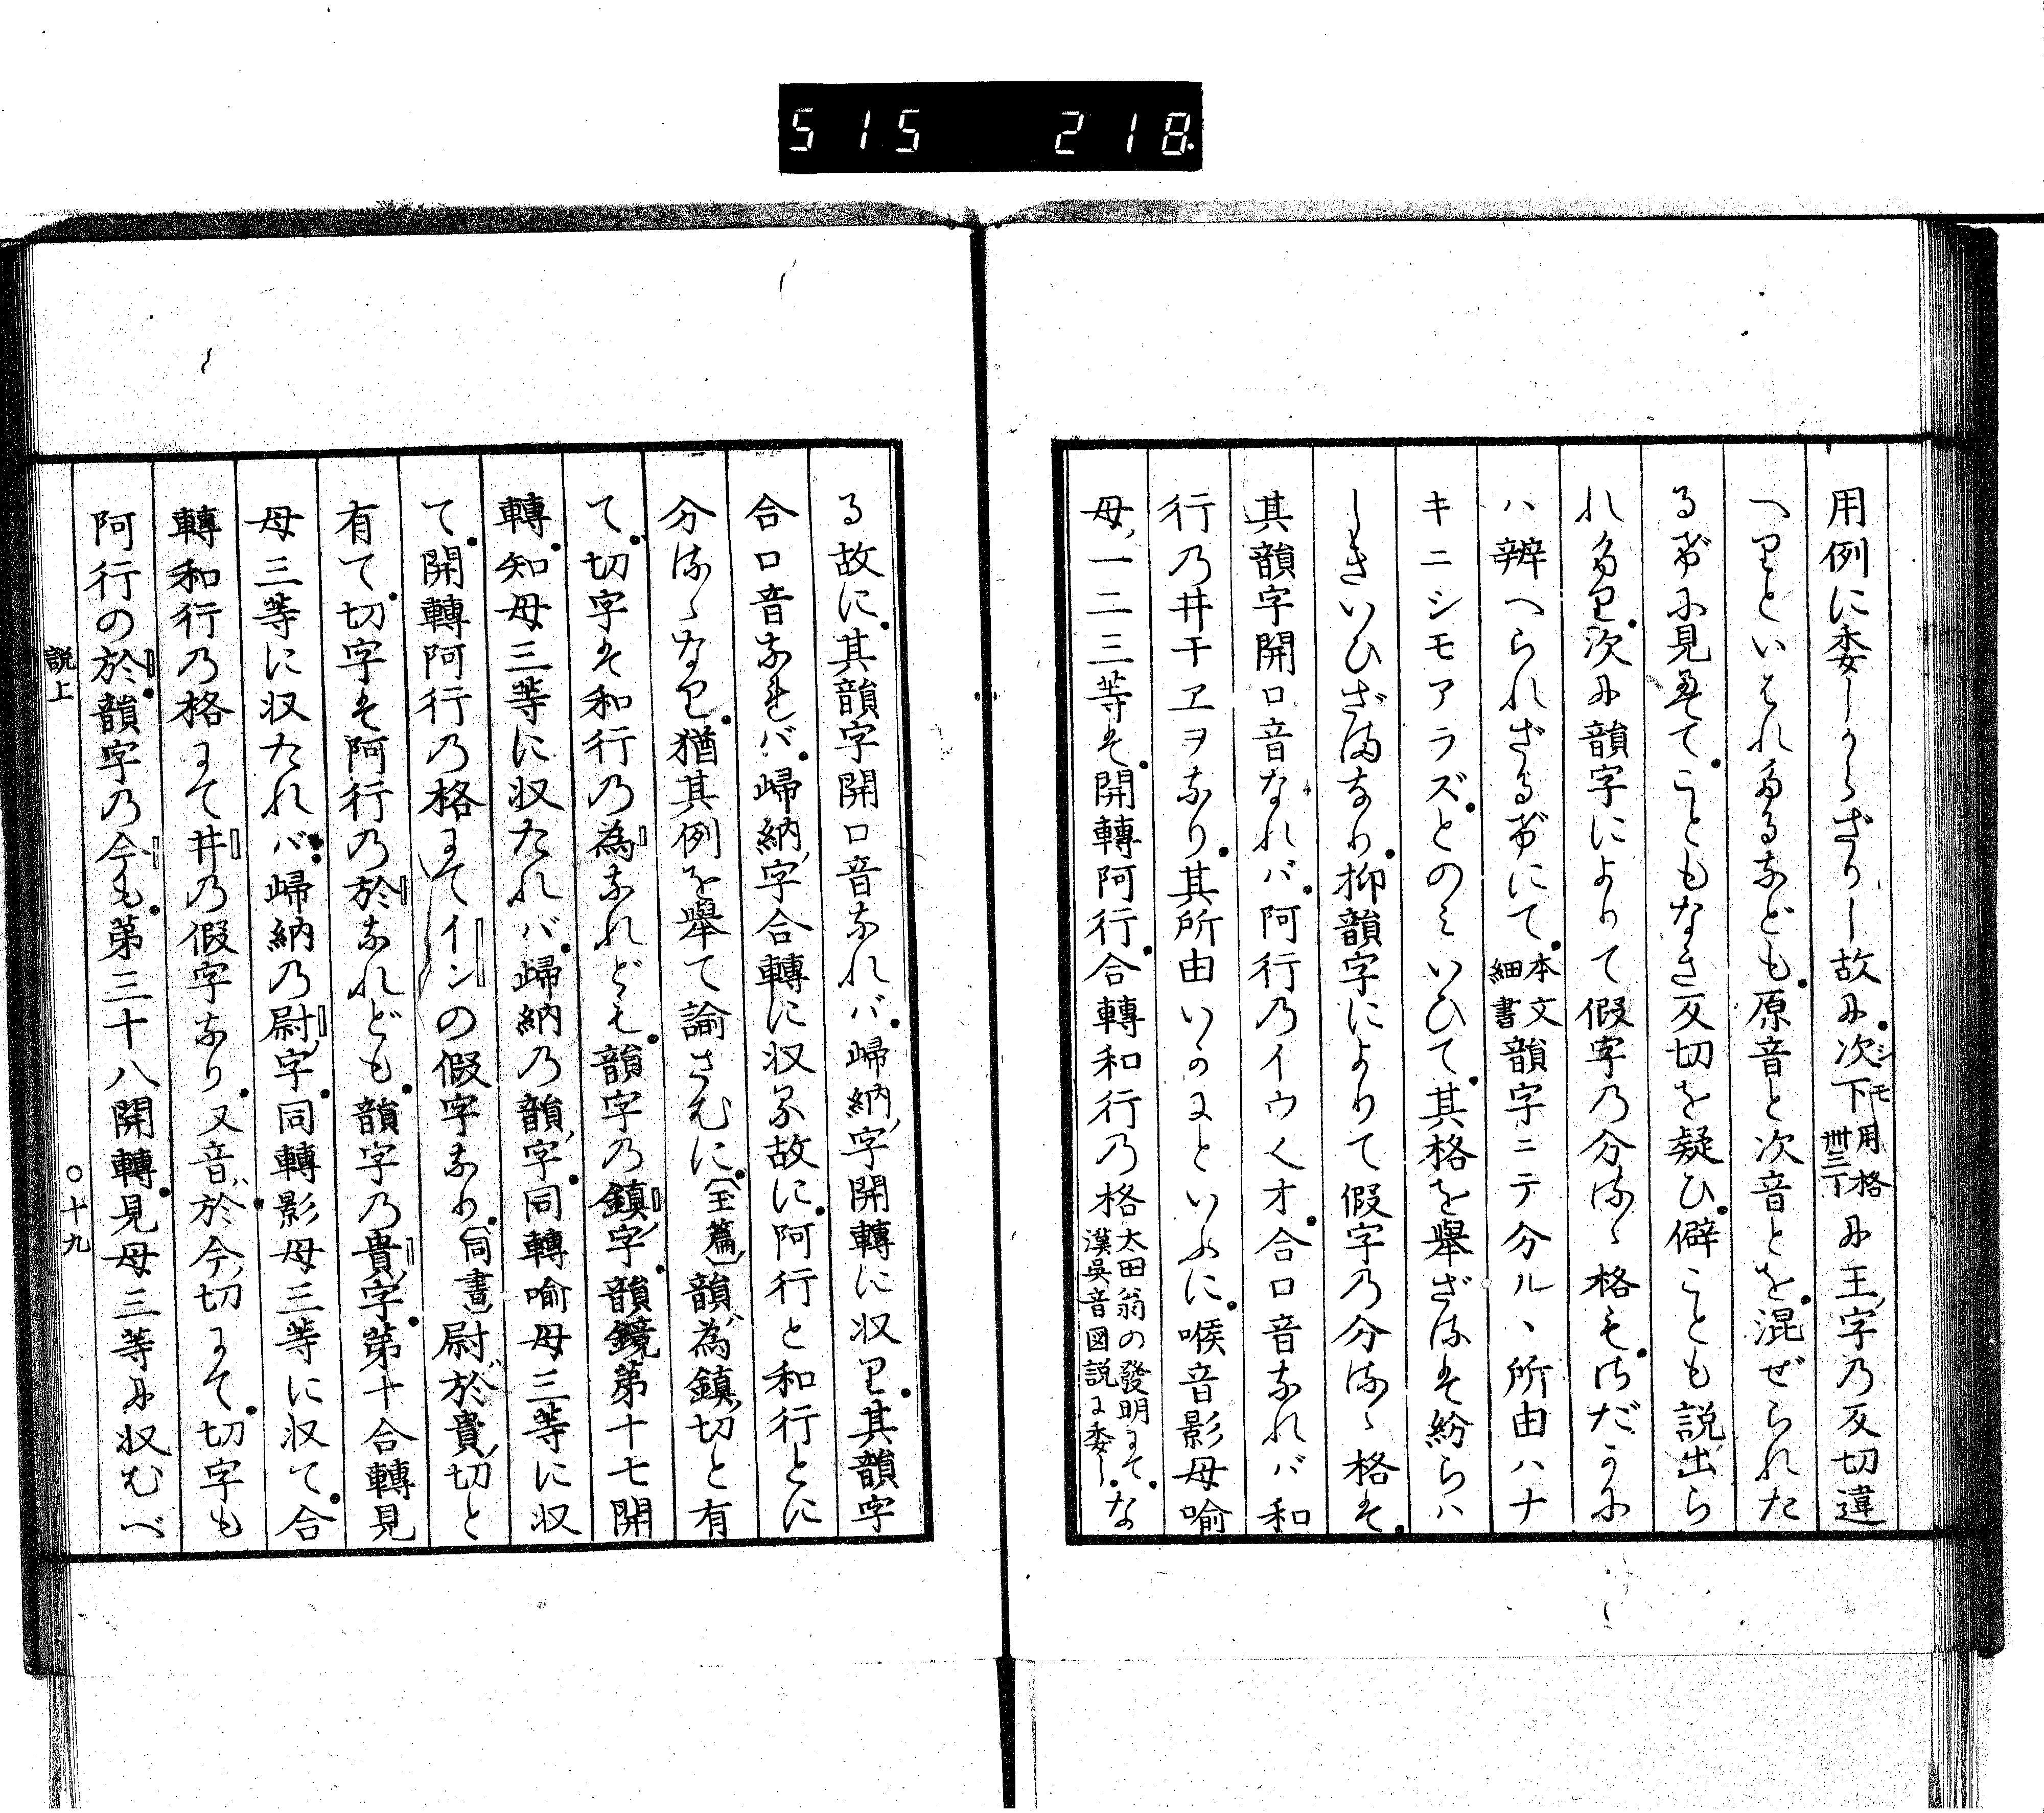 515 218
用例に委しからざりし故に次下用格卅三丁に王字乃反切違
シモ
へりといはれたるなども原音と次音とを混ぜられた
るがに見えてこともなき反切を疑ひ僻ことも説出ら
れたり次に韻字によりて假字乃分るゝ格もさだかに
ハ辨へられざるがにて本文細書韻字ニテ分ルヽ所由ハナ
キニシモアラズとのミいひて其格を舉ざるは紛らハ
しきいひざまなり抑韻字によりて假字乃分るゝ格は
其韻字開口音なれバ阿行乃イウエオ合口音なれバ和
行乃井于ヱヲなり其所由いかにといふに喉音影母喩
母一二三等は開轉阿行合轉和行乃格太田翁の發明にて漢吳音図説に委し な
る故に其韻字開口音なれバ歸納字開轉に収り其韻字
合口音なれバ歸納字合轉に収る故に阿行と和行とに
分るゝなり猶其例を舉て諭さむに玉篇韻為鎮切と有
て切字は和行乃為なれども韻字乃鎮字韻鏡第十七開
轉知母三等に収たれバ歸納乃韻字同轉喩母三等に収
て開轉阿行乃格にてインの假字なり同書尉於貴切と
有て切字は阿行乃於なれども韻字乃貴字第十合轉見
母三等に収たれバ歸納乃尉字同轉影母三等に収て合
轉和行乃格にて井乃假字なり又音於今切にて切字も
阿行の於韻字乃今も第三十八開轉見母三等に収むべ
説上
○十九